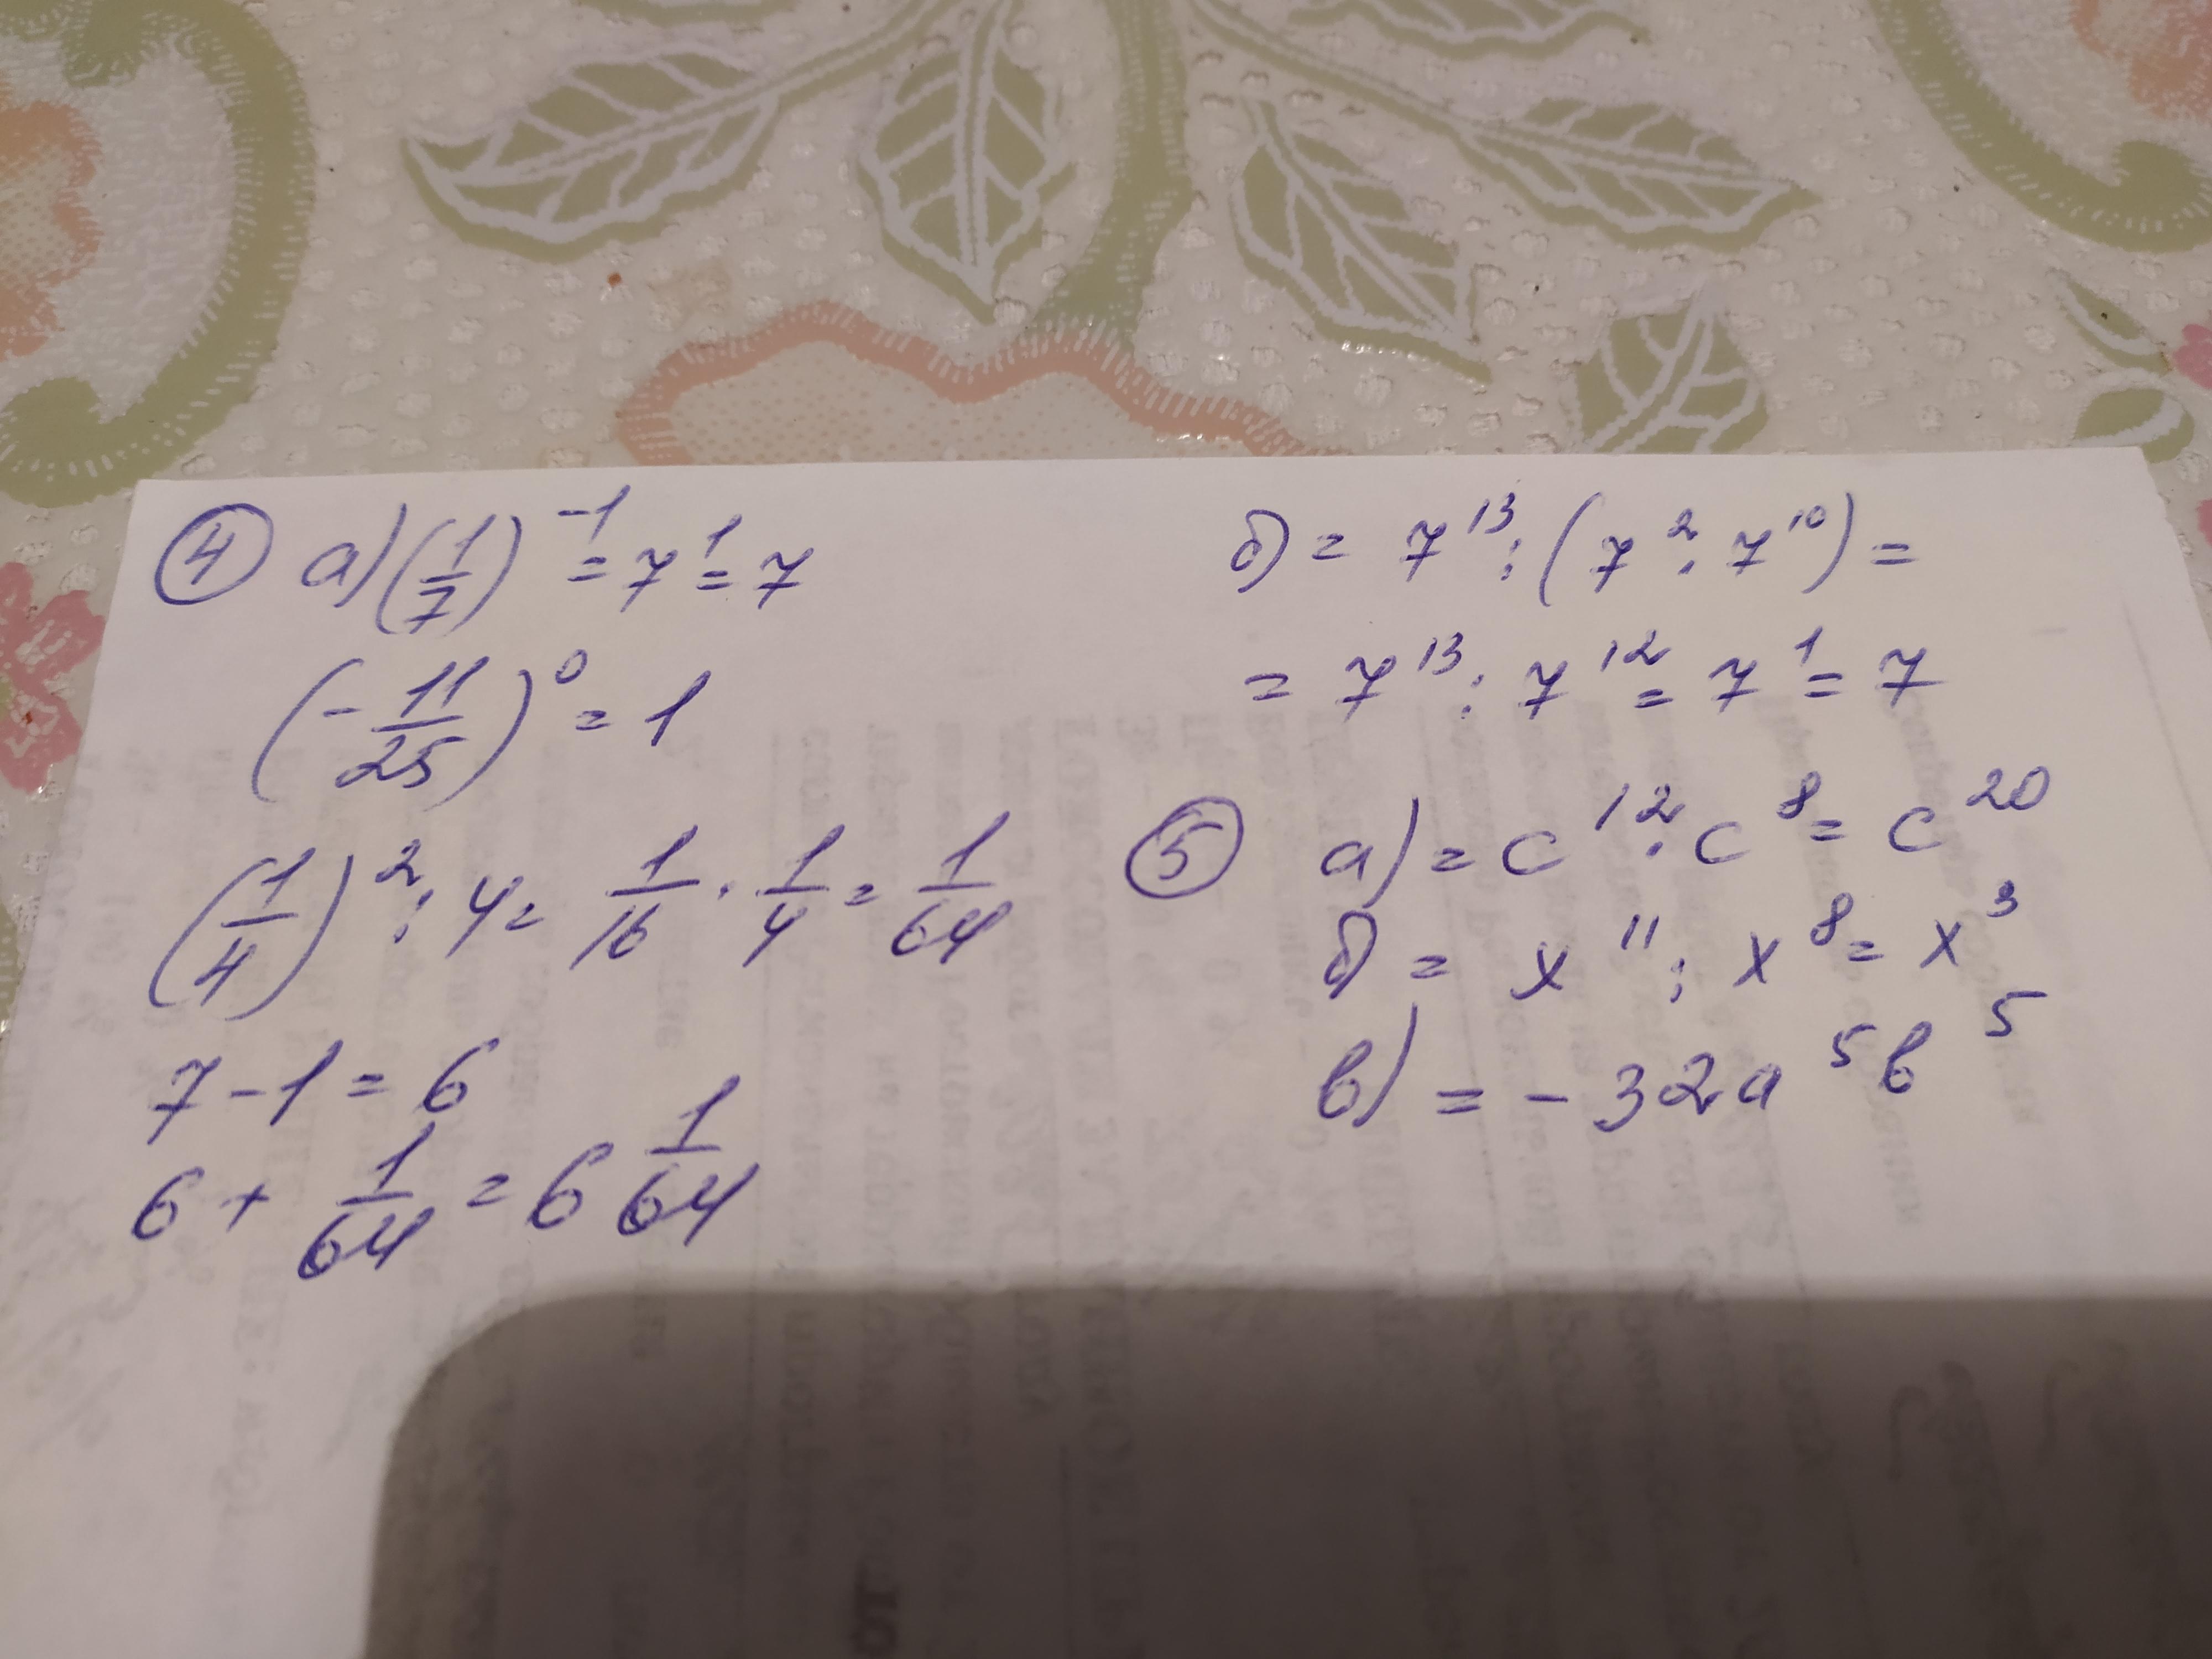 ④ а) (1/7)⁻¹ = 7¹ = 7
(- 11/25)⁰ = 1
(1/4)² : 4 = 1/16 · 1/4 = 1/64
7 - 1 = 6
6 + 1/64 = 6 1/64
б) = 7¹³ : (7² · 7¹⁰) =
= 7¹³ : 7¹² = 7¹ = 7
⑤ а) = c¹² · c⁸ = c²⁰
б) = x¹¹ : x⁸ = x³
в) = - 32a⁵b⁵